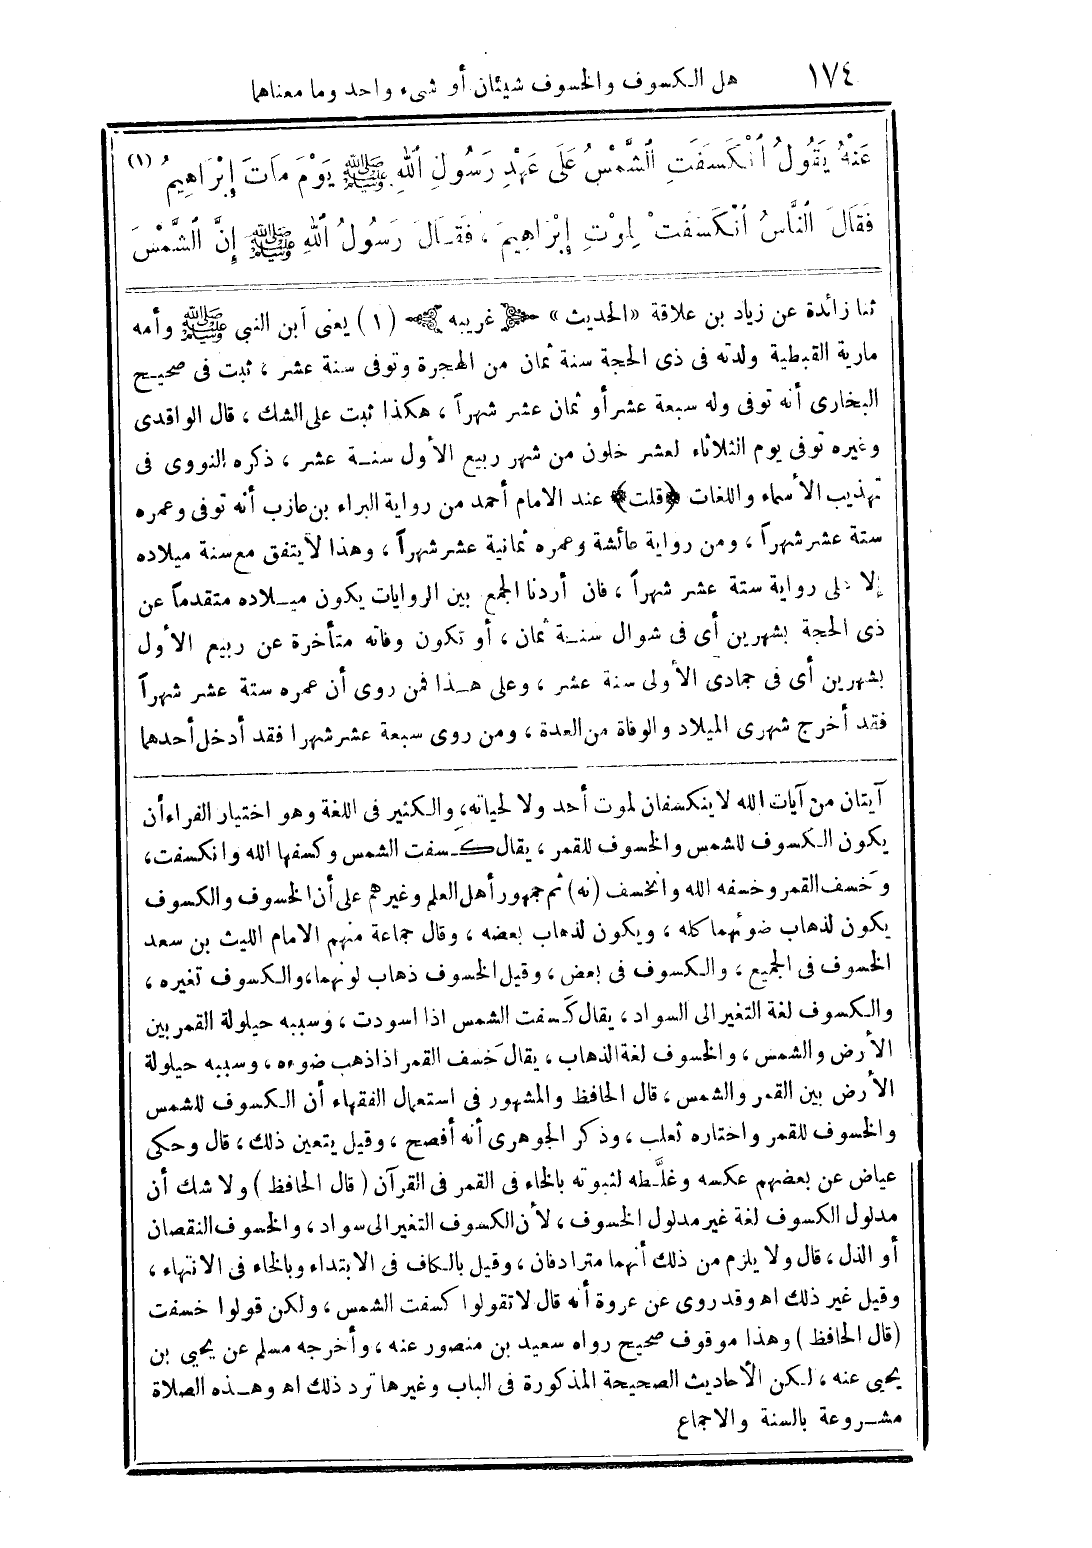 ١٧٤ هل الكسوف والخسوف شيئان أو شىء واحد وما معناهما
عَنْهُ يَقُولُ ٱنْكَسَفَتِ ٱلشَّمْسُ عَلَى عَهْدِ رَسُولِ ٱللهِ ﷺ يَوْمَ مَاتَ إِبْرَاهِيمُ (١)
فَقَالَ ٱلنَّاسُ ٱنْكَسَفَتْ لِمَوْتِ إِبْرَاهِيمَ ، فَقَالَ رَسُولُ ٱللهِ ﷺ إِنَّ ٱلشَّمْسَ
ثنا زائدة عن زياد بن علاقة «الحديث» غريبه (١) يعنى ابن النبى ﷺ وأمه
مارية القبطية ولدته فى ذى الحجة سنة ثمان من الهجرة وتوفى سنة عشر ، ثبت فى صحيح
البخارى أنه توفى وله سبعة عشر أو ثمان عشر شهراً ، هكذا ثبت على الشك ، قال الواقدى
وغيره توفى يوم الثلاثاء لعشر خلون من شهر ربيع الأول سنة عشر ، ذكره النووى فى
تهذيب الأسماء واللغات (قلت) عند الامام أحمد من رواية البراء بن عازب أنه توفى وعمره
ستة عشر شهراً ، ومن رواية عائشة وعمره ثمانية عشر شهراً ، وهذا لا يتفق مع سنة ميلاده
إلا على رواية ستة عشر شهراً ، فان أردنا الجمع بين الروايات يكون ميلاده متقدماً عن
ذى الحجة بشهرين أى فى شوال سنة ثمان ، أو تكون وفاته متأخرة عن ربيع الأول
بشهرين أى فى جمادى الأولى سنة عشر ، وعلى هذا فمن روى أن عمره ستة عشر شهراً
فقد أخرج شهرى الميلاد والوفاة من العدة ، ومن روى سبعة عشر شهرا فقد أدخل أحدهما
آيتان من آيات الله لا ينكسفان لموت أحد ولا لحياته، والكثير فى اللغة وهو اختيار الفراء أن
يكون الكسوف للشمس والخسوف للقمر ، يقال كسفت الشمس وكسفها الله وانكسفت،
وخَسف القمر وخسفه الله وانخسف (نه) ثم جمهور أهل العلم وغيرهم على أن الخسوف والكسوف
يكون لذهاب ضوئهما كله ، ويكون لذهاب بعضه ، وقال جماعة منهم الامام الليث بن سعد
الخسوف فى الجميع ، والكسوف فى بعض ، وقيل الخسوف ذهاب لونهما، والكسوف تغيره ،
والكسوف لغة التغير الى السواد ، يقال كَسفت الشمس اذا اسودت ، وسببه حيلولة القمر بين
الأرض والشمس ، والخسوف لغة الذهاب ، يقال خَسف القمر اذا ذهب ضوءه ، وسببه حيلولة
الأرض بين القمر والشمس ، قال الحافظ والمشهور فى استعمال الفقهاء أن الكسوف للشمس
والخسوف للقمر واختاره ثعلب ، وذكر الجوهرى أنه أفصح ، وقيل يتعين ذلك ، قال وحكى
عياض عن بعضهم عكسه وغلَّطه لثبوته بالخاء فى القمر فى القرآن (قال الحافظ) ولا شك أن
مدلول الكسوف لغة غير مدلول الخسوف ، لأن الكسوف التغير الى سواد ، والخسوف النقصان
أو الذل ، قال ولا يلزم من ذلك أنهما مترادفان ، وقيل بالكاف فى الابتداء وبالخاء فى الانتهاء ،
وقيل غير ذلك اه وقد روى عن عروة أنه قال لا تقولوا كسفت الشمس ، ولكن قولوا خسفت
(قال الحافظ) وهذا موقوف صحيح رواه سعيد بن منصور عنه ، وأخرجه مسلم عن يحيى بن
يحيى عنه ، لكن الأحاديث الصحيحة المذكورة فى الباب وغيرها ترد ذلك اه وهذه الصلاة
مشروعة بالسنة والاجماع